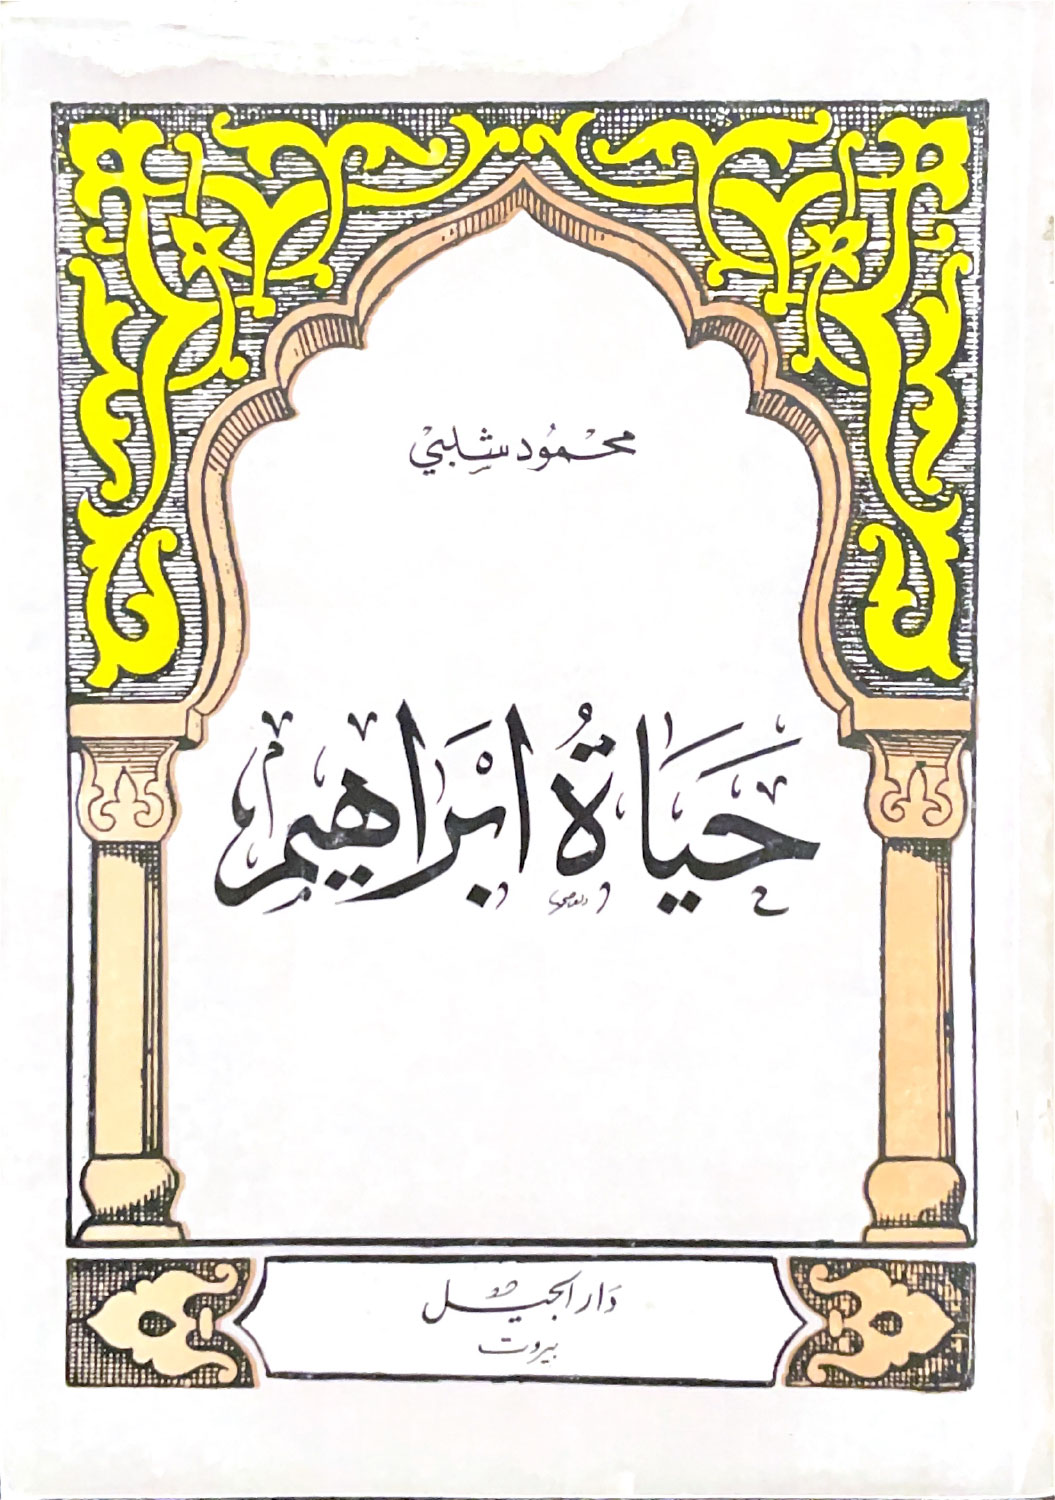 محمود شلبي
حَيَاةُ ابْرَاهيم
دار الجيل
بيروت